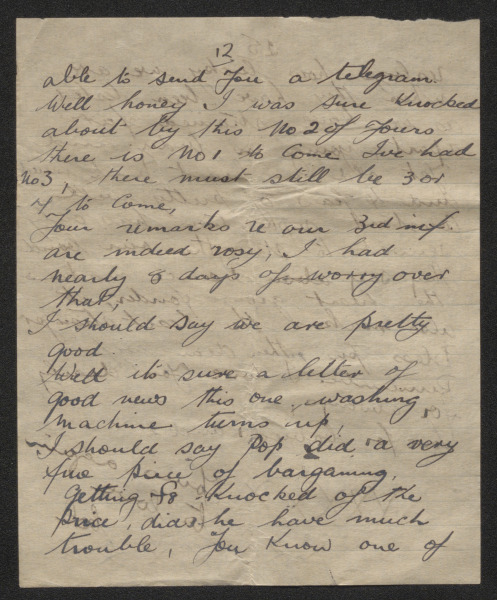 12
able to send You a telegram.
Well honey I was sure Knocked
about by this No 2 of Yours
there is No 1 to Come I've had
No 3, there must still be 3 or
4 to Come,
Your remarks re our 3rd inf.
are indeed rosy, I had
nearly 8 days of worry over
that,
I should say we are pretty
good.
Well its sure a letter of
good news this one, washing
machine turns up,
I should say Pop did a very
fine piece of bargaining,
Getting Knocked of the
Price, did he have much
trouble, You Know one of